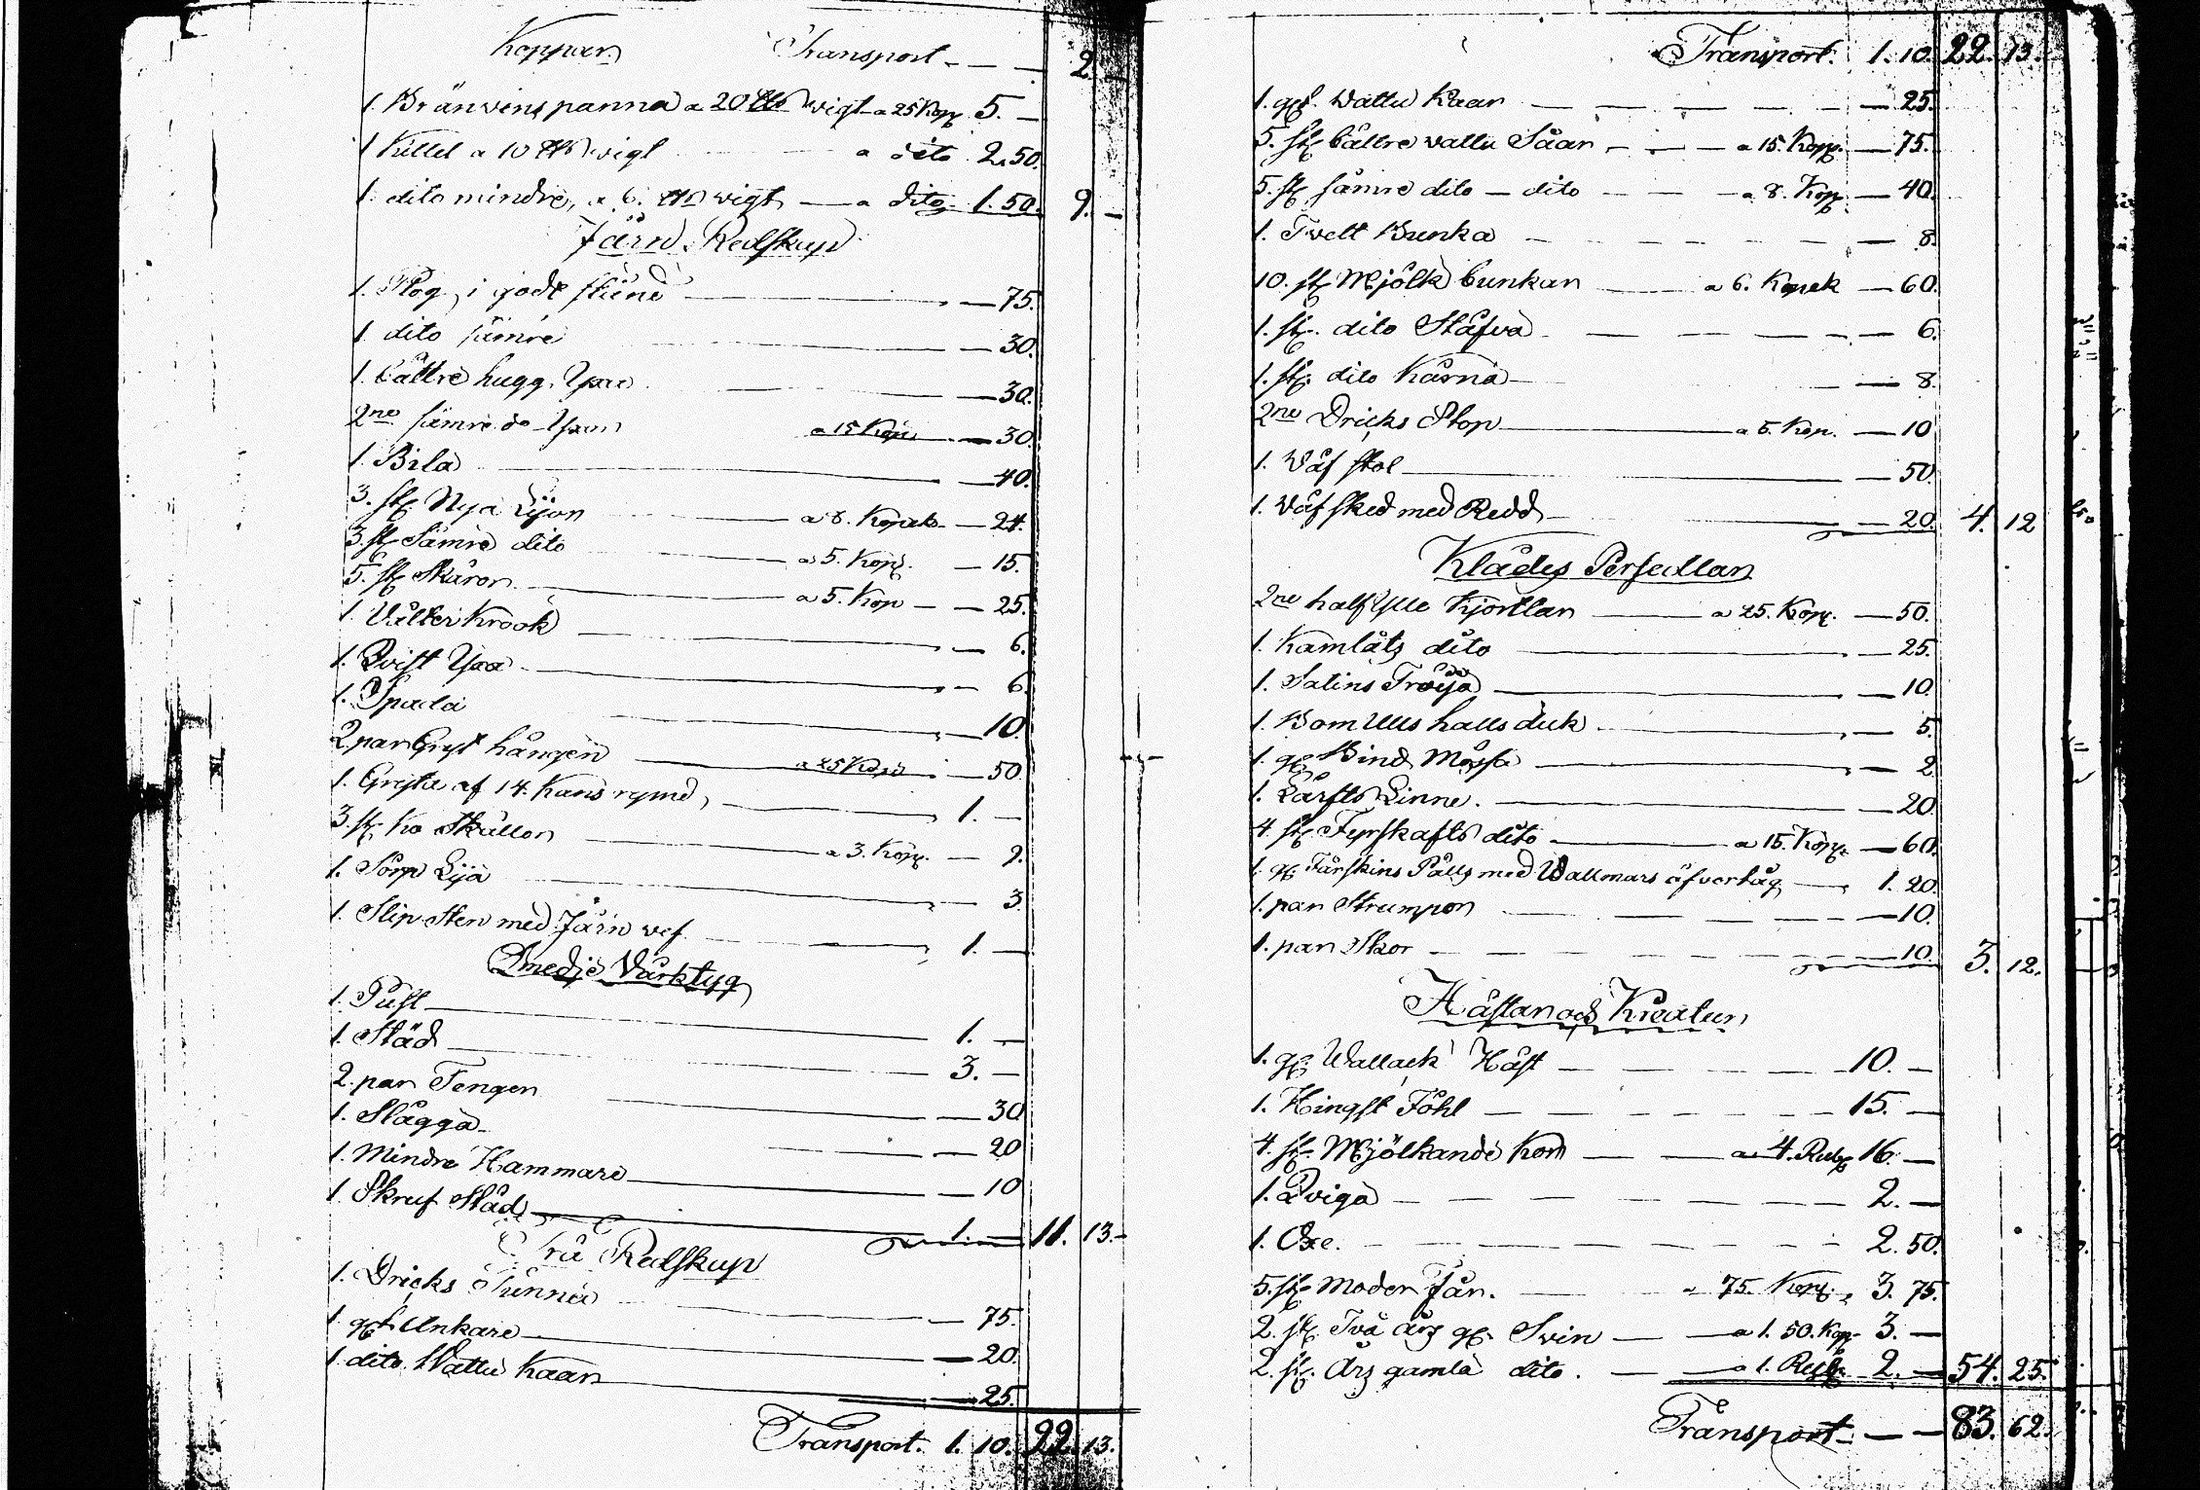 Koppar Transport - - - 2. -
1. Bränvins panna a 20 ℔ wigt a 25 Kop 5. -
1 Kittel a 10 ℔ wigt a dito 2.50.
1. dito mindre, a 6. ℔ wigt - a dito 1.50. 9. -
Järn Redskap
1. Plog, i godt stånd - 75.
1. dito sämre - 30.
1. bättre hugg. Yxa - 30.
2ne sämre do Yxor a 15 Kop - 30.
1. Bila - 40.
3. st. Nya Lijon a 8. Kopek - 24.
3. st. Sämre dito a 5. Kop. - 15.
5. st. Skäror a 5. Kop - 25.
1. Krook - 6.
1. Qvist Yxa - 6.
1. Spada - 10.
2 par Gryt hängen a 25 Kop - 50
1. Gryta af 14. Kans rymd, 1. -
3. st. Ko Skällor a 3. Kop. - 9.
1. Sörp Lija - 3.
1. Slip Sten med Järn vef 1. -
Smedje Värktyg
1. Pust 1. -
1. Städ 3. -
2. par Tenger - 30
1. Slägga - 20
1. Mindre Hammare - 10
1. Skruf Städ 1. - 11. 13. -
Trä Redskap
1. Dricks Tunna - 75.
1. gl. Ankare - 20.
1. dito Wattu Kaar - 25.
Transport. 1. 10. 22. 13.
Transport. 1. 10. 22. 13.
1. gl. Wattu Kaar - 25.
5. st. bättre wattu Såar a 15. Kop. - 75.
5. st. sämre dito - dito a 8. Kop - 40.
1. Tvett Bunka - 8.
10. st. Mjölk bunkar a 6. Kopek - 60.
1. st. dito Stäfva - 6.
1. st. dito Kärna - 8.
2ne Dricks Stop a 5. Kop. - 10
1. Väf stol - 50.
1. Väf sked med Redd - 20. 4. 12
Klädes Persedlar
2ne half Ylle Kjortlar a 25. Kop. - 50.
1. Kamlåts dito - 25.
1. Satins Tröja - 10.
1. Bom Ulls halls duk - 5.
1. gl. Bind Mössa - 2.
1. Lärfts Linne. - 20.
4. st. Fyrskafts dito a 15. Kop. - 60.
1. gl. Fårskins Pälts med Wallmars öfvertåg 1. 20.
1. par Strumpor - 10.
1. par Skor - 10. 3. 12.
Hästar och Kreatur
1. gl. Wallack Häst 10. -
1. Hingst Föhl 15. -
4. st. Mjölkande Kor a 4. Rub. 16. -
1. Qviga 2. -
1. Oxe. 2. 50.
5. st. Moder Får. a 75. Kop. 3. 75.
2. st. Två års gl. Svin a 1. 50. Kop. 3. -
2. st. Års gamla dito. a 1. Rub. 2. - 54. 25.
Transport - - 83. 62.